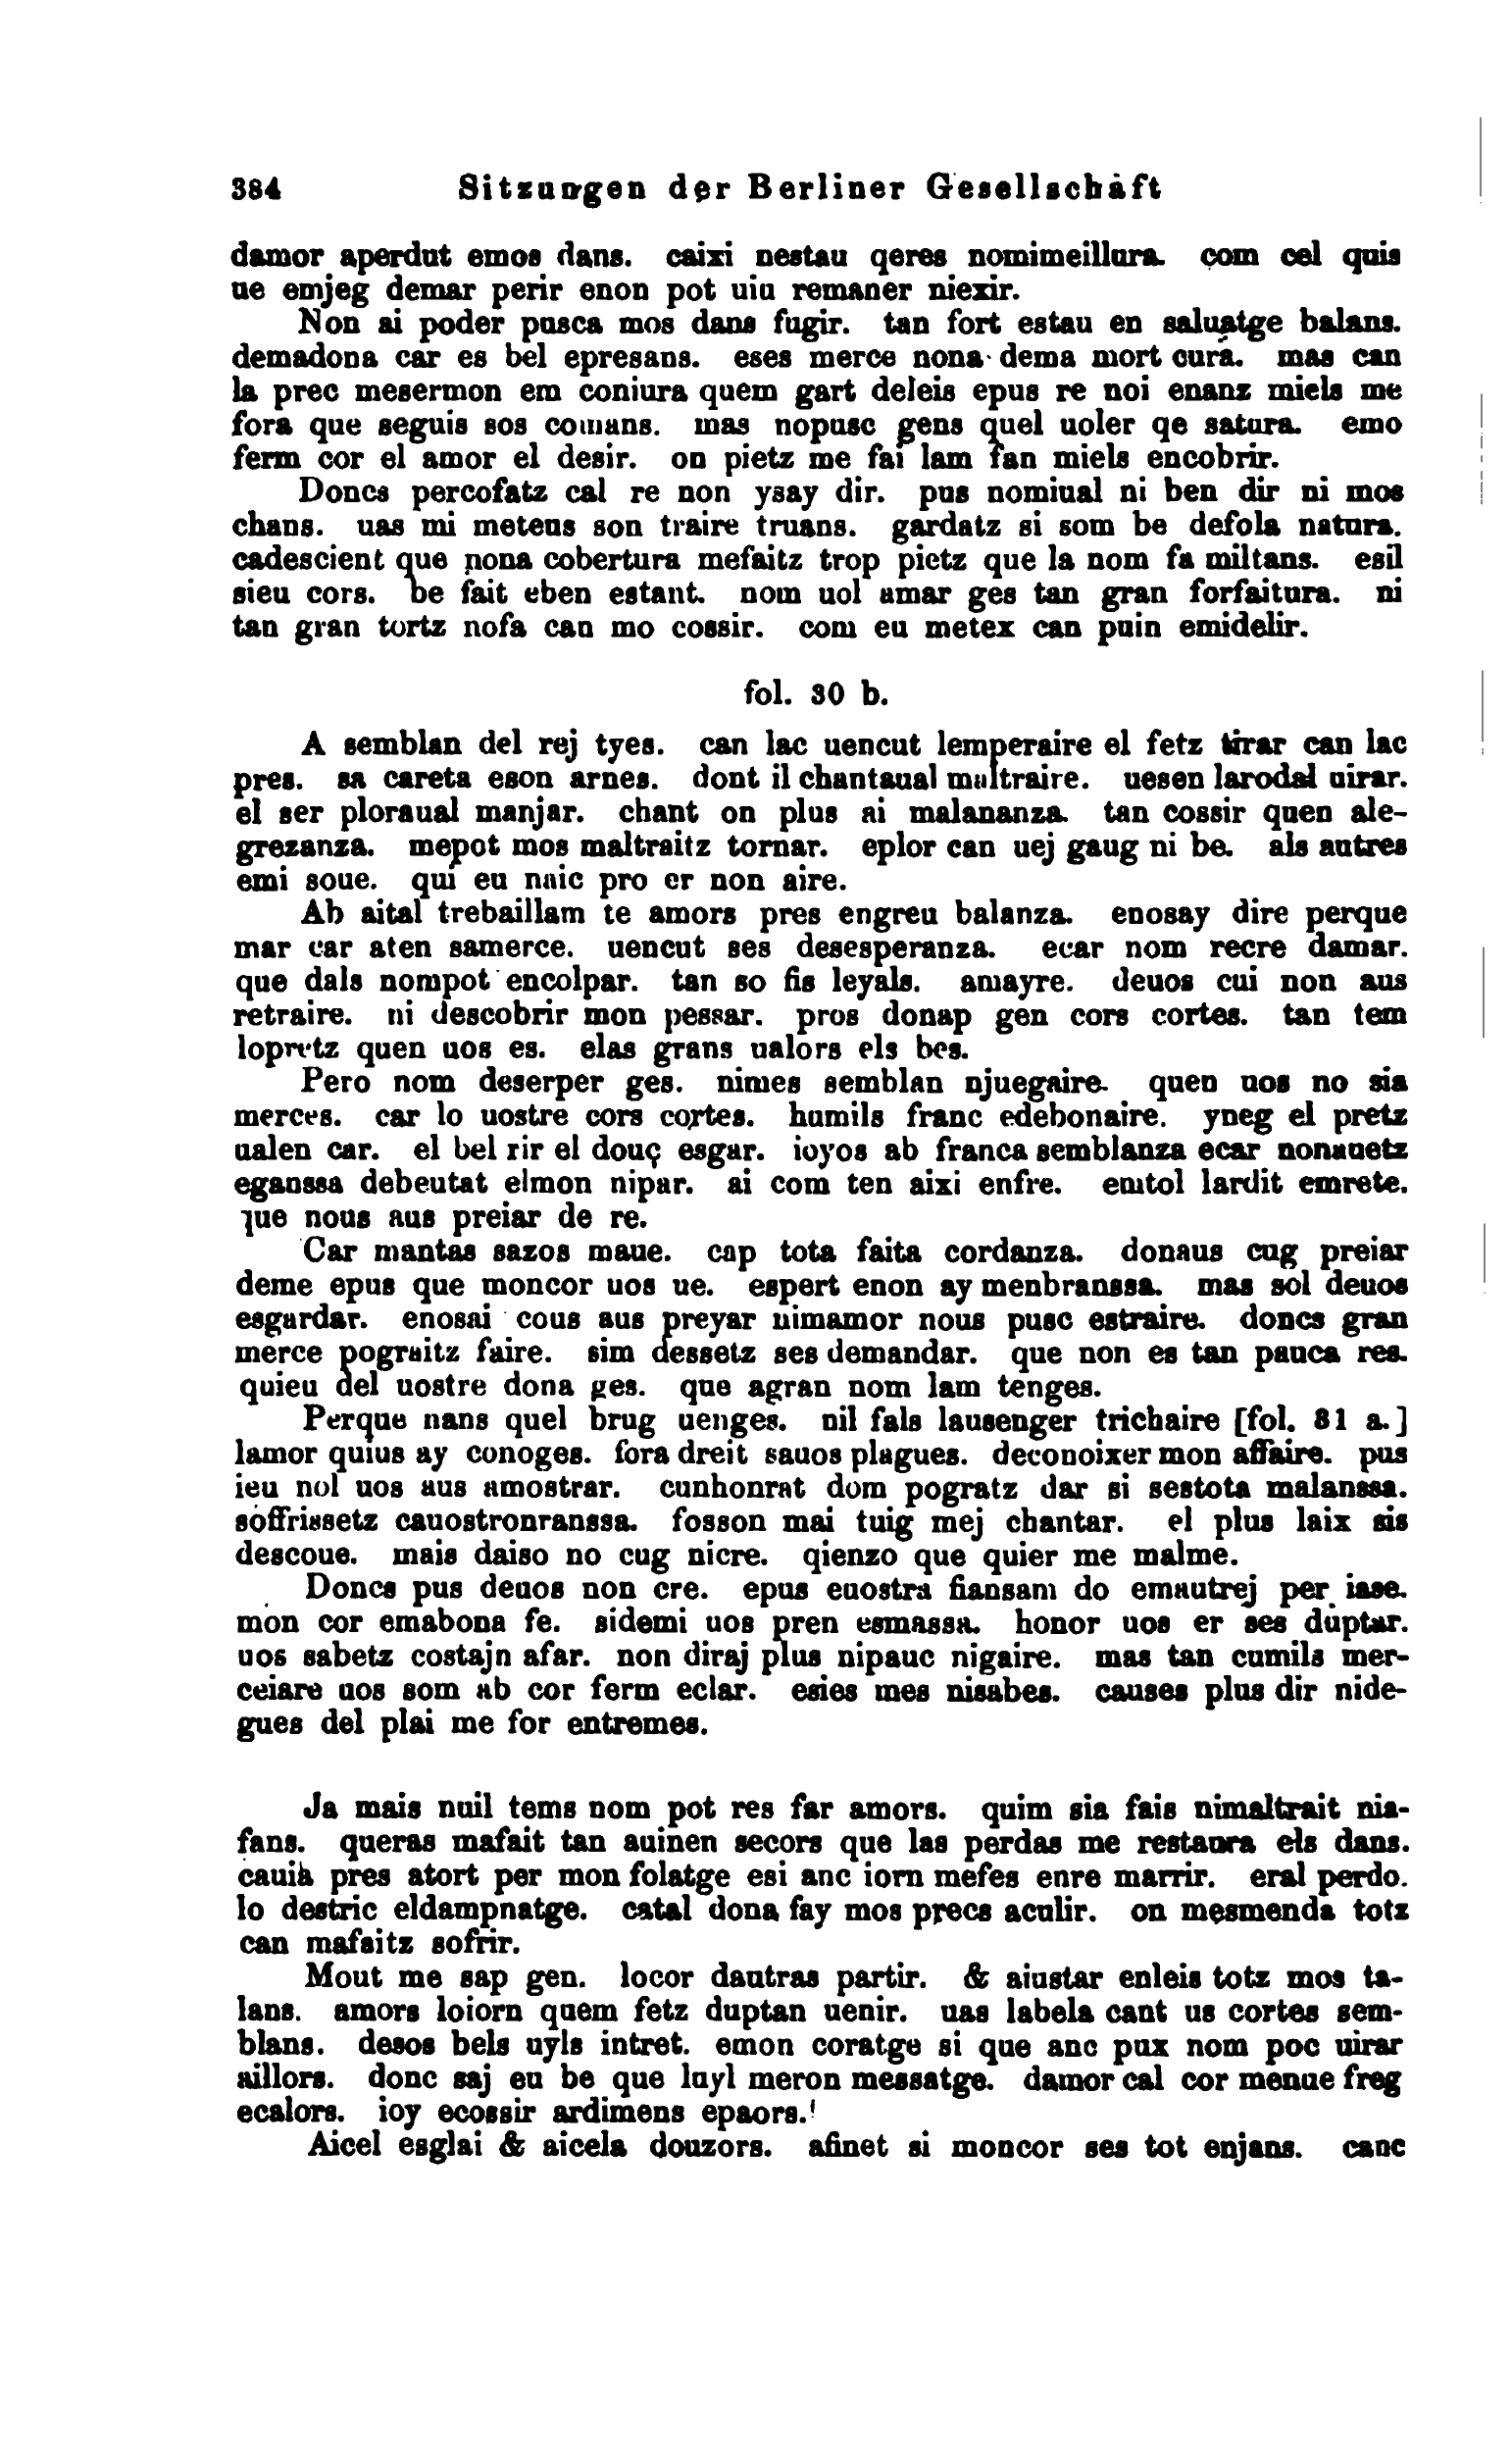 384 Sitzungen der Berliner Gesellschaft
damor aperdut emos dans. caixi nestau qeres nomimeillura. com cel quis
ue emjeg demar perir enon pot uiu remaner niexir.
Non ai poder pusca mos dans fugir. tan fort estau en saluatge balans.
demadona car es bel epresans. eses merce nona dema mort cura. mas can
la prec mesermon em coniura quem gart deleis epus re noi enanz miels me
fora que seguis sos comans. mas nopusc gens quel uoler qe satura. emo
ferm cor el amor el desir. on pietz me fai lam fan miels encobrir.
Doncs percofatz cal re non ysay dir. pus nomiual ni ben dir ni mos
chans. uas mi meteus son traire truans. gardatz si som be defola natura.
cadescient que nona cobertura mefaitz trop pietz que la nom fa miltans. esil
sieu cors. be fait eben estant. nom uol amar ges tan gran forfaitura. ni
tan gran tortz nofa can mo cossir. com eu metex can puin emidelir.
fol. 30 b.
A semblan del rej tyes. can lac uencut lemperaire el fetz tirar can lac
pres. sa careta eson arnes. dont il chantaual maltraire. uesen larodal uirar.
el ser ploraual manjar. chant on plus ai malananza. tan cossir quen ale-
grezanza. mepot mos maltraitz tornar. eplor can uej gaug ni be. als autres
emi soue. qui eu naic pro er non aire.
Ab aital trebaillam te amors pres engreu balanza. enosay dire perque
mar car aten samerce. uencut ses desesperanza. ecar nom recre damar.
que dals nompot encolpar. tan so fis leyals. amayre. deuos cui non aus
retraire. ni descobrir mon pessar. pros donap gen cors cortes. tan tem
lopretz quen uos es. elas grans ualors els bes.
Pero nom deserper ges. nimes semblan njuegaire. quen uos no sia
merces. car lo uostre cors cortes. humils franc edebonaire. yneg el pretz
ualen car. el bel rir el douç esgar. ioyos ab franca semblanza ecar nonauetz
eganssa debeutat elmon nipar. ai com ten aixi enfre. emtol lardit emrete.
que nous aus preiar de re.
Car mantas sazos maue. cap tota faita cordanza. donaus cug preiar
deme epus que moncor uos ue. espert enon ay menbranssa. mas sol deuos
esgardar. enosai cous aus preyar nimamor nous pusc estraire. doncs gran
merce pograitz faire. sim dessetz ses demandar. que non es tan pauca res.
quieu del uostre dona ges. que agran nom lam tenges.
Perque nans quel brug uenges. nil fals lausenger trichaire [fol. 31 a.]
lamor quius ay conoges. fora dreit sauos plagues. deconoixer mon affaire. pus
ieu nol uos aus amostrar. cunhonrat dom pogratz dar si sestota malanssa.
soffrissetz cauostronranssa. fosson mai tuig mej chantar. el plus laix sis
descoue. mais daiso no cug nicre. qienzo que quier me malme.
Doncs pus deuos non cre. epus euostra fiansam do emautrej per iase.
mon cor emabona fe. sidemi uos pren esmassa. honor uos er ses duptar.
uos sabetz costajn afar. non diraj plus nipauc nigaire. mas tan cumils mer-
ceiare uos som ab cor ferm eclar. esies mes nisabes. causes plus dir nide-
gues del plai me for entremes.
Ja mais nuil tems nom pot res far amors. quim sia fais nimaltrait nia-
fans. queras mafait tan auinen secors que las perdas me restaura els dans.
cauia pres atort per mon folatge esi anc iorn mefes enre marrir. eral perdo.
lo destric eldampnatge. catal dona fay mos precs aculir. on mesmenda totz
can mafaitz sofrir.
Mout me sap gen. locor dautras partir. & aiustar enleis totz mos ta-
lans. amors loiorn quem fetz duptan uenir. uas labela cant us cortes sem-
blans. desos bels uyls intret. emon coratge si que anc pux nom poc uirar
aillors. donc saj eu be que luyl meron messatge. damor cal cor menue freg
ecalors. ioy ecossir ardimens epaors.
Aicel esglai & aicela douzors. afinet si moncor ses tot enjans. canc